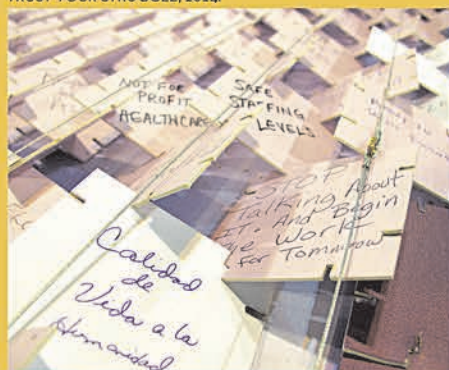 NOT FOR
PROFIT
HEALTHCARE
SAFE
STAFFING
LEVELS
STOP
Talking About
IT. And Begin
Work
for Tomorrow
Calidad
de
Vida a la
Humanidad